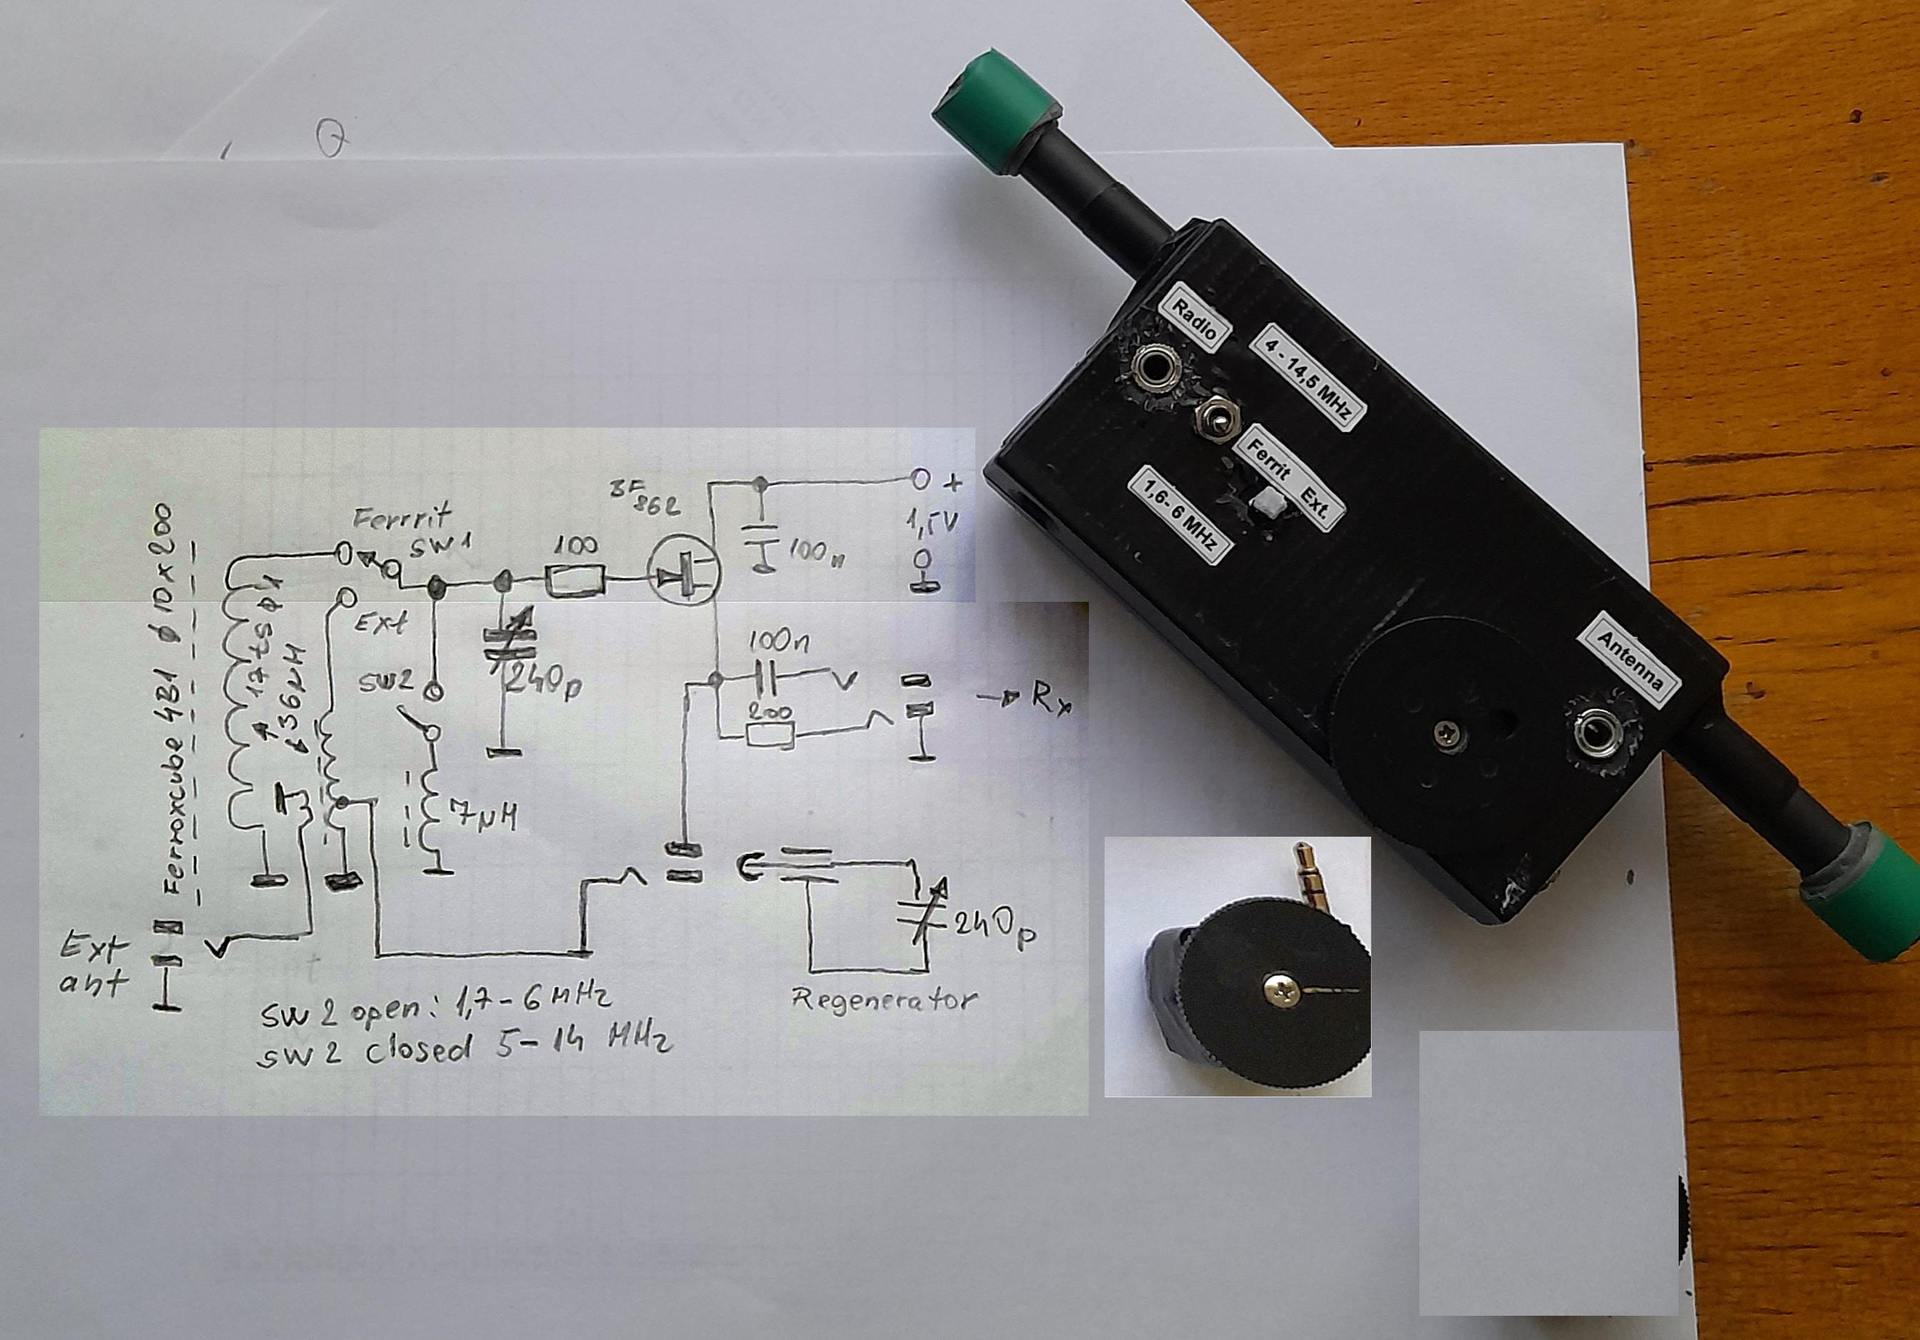 Q
Radio
4 - 14,5 MHz
Ferrit Ext.
1,6- 6 MHz
Antenna
Ferroxcube 4B1 ϕ 10x200
Ferrrit
SW1
Ext
17ts ϕ1
36µH
SW2
240p
7µH
100
BF 862
100n
+
1,5V
100n
200
→ Rx
Ext
ant
240p
Regenerator
SW 2 open: 1,7-6 MHz
SW 2 closed 5-14 MHz